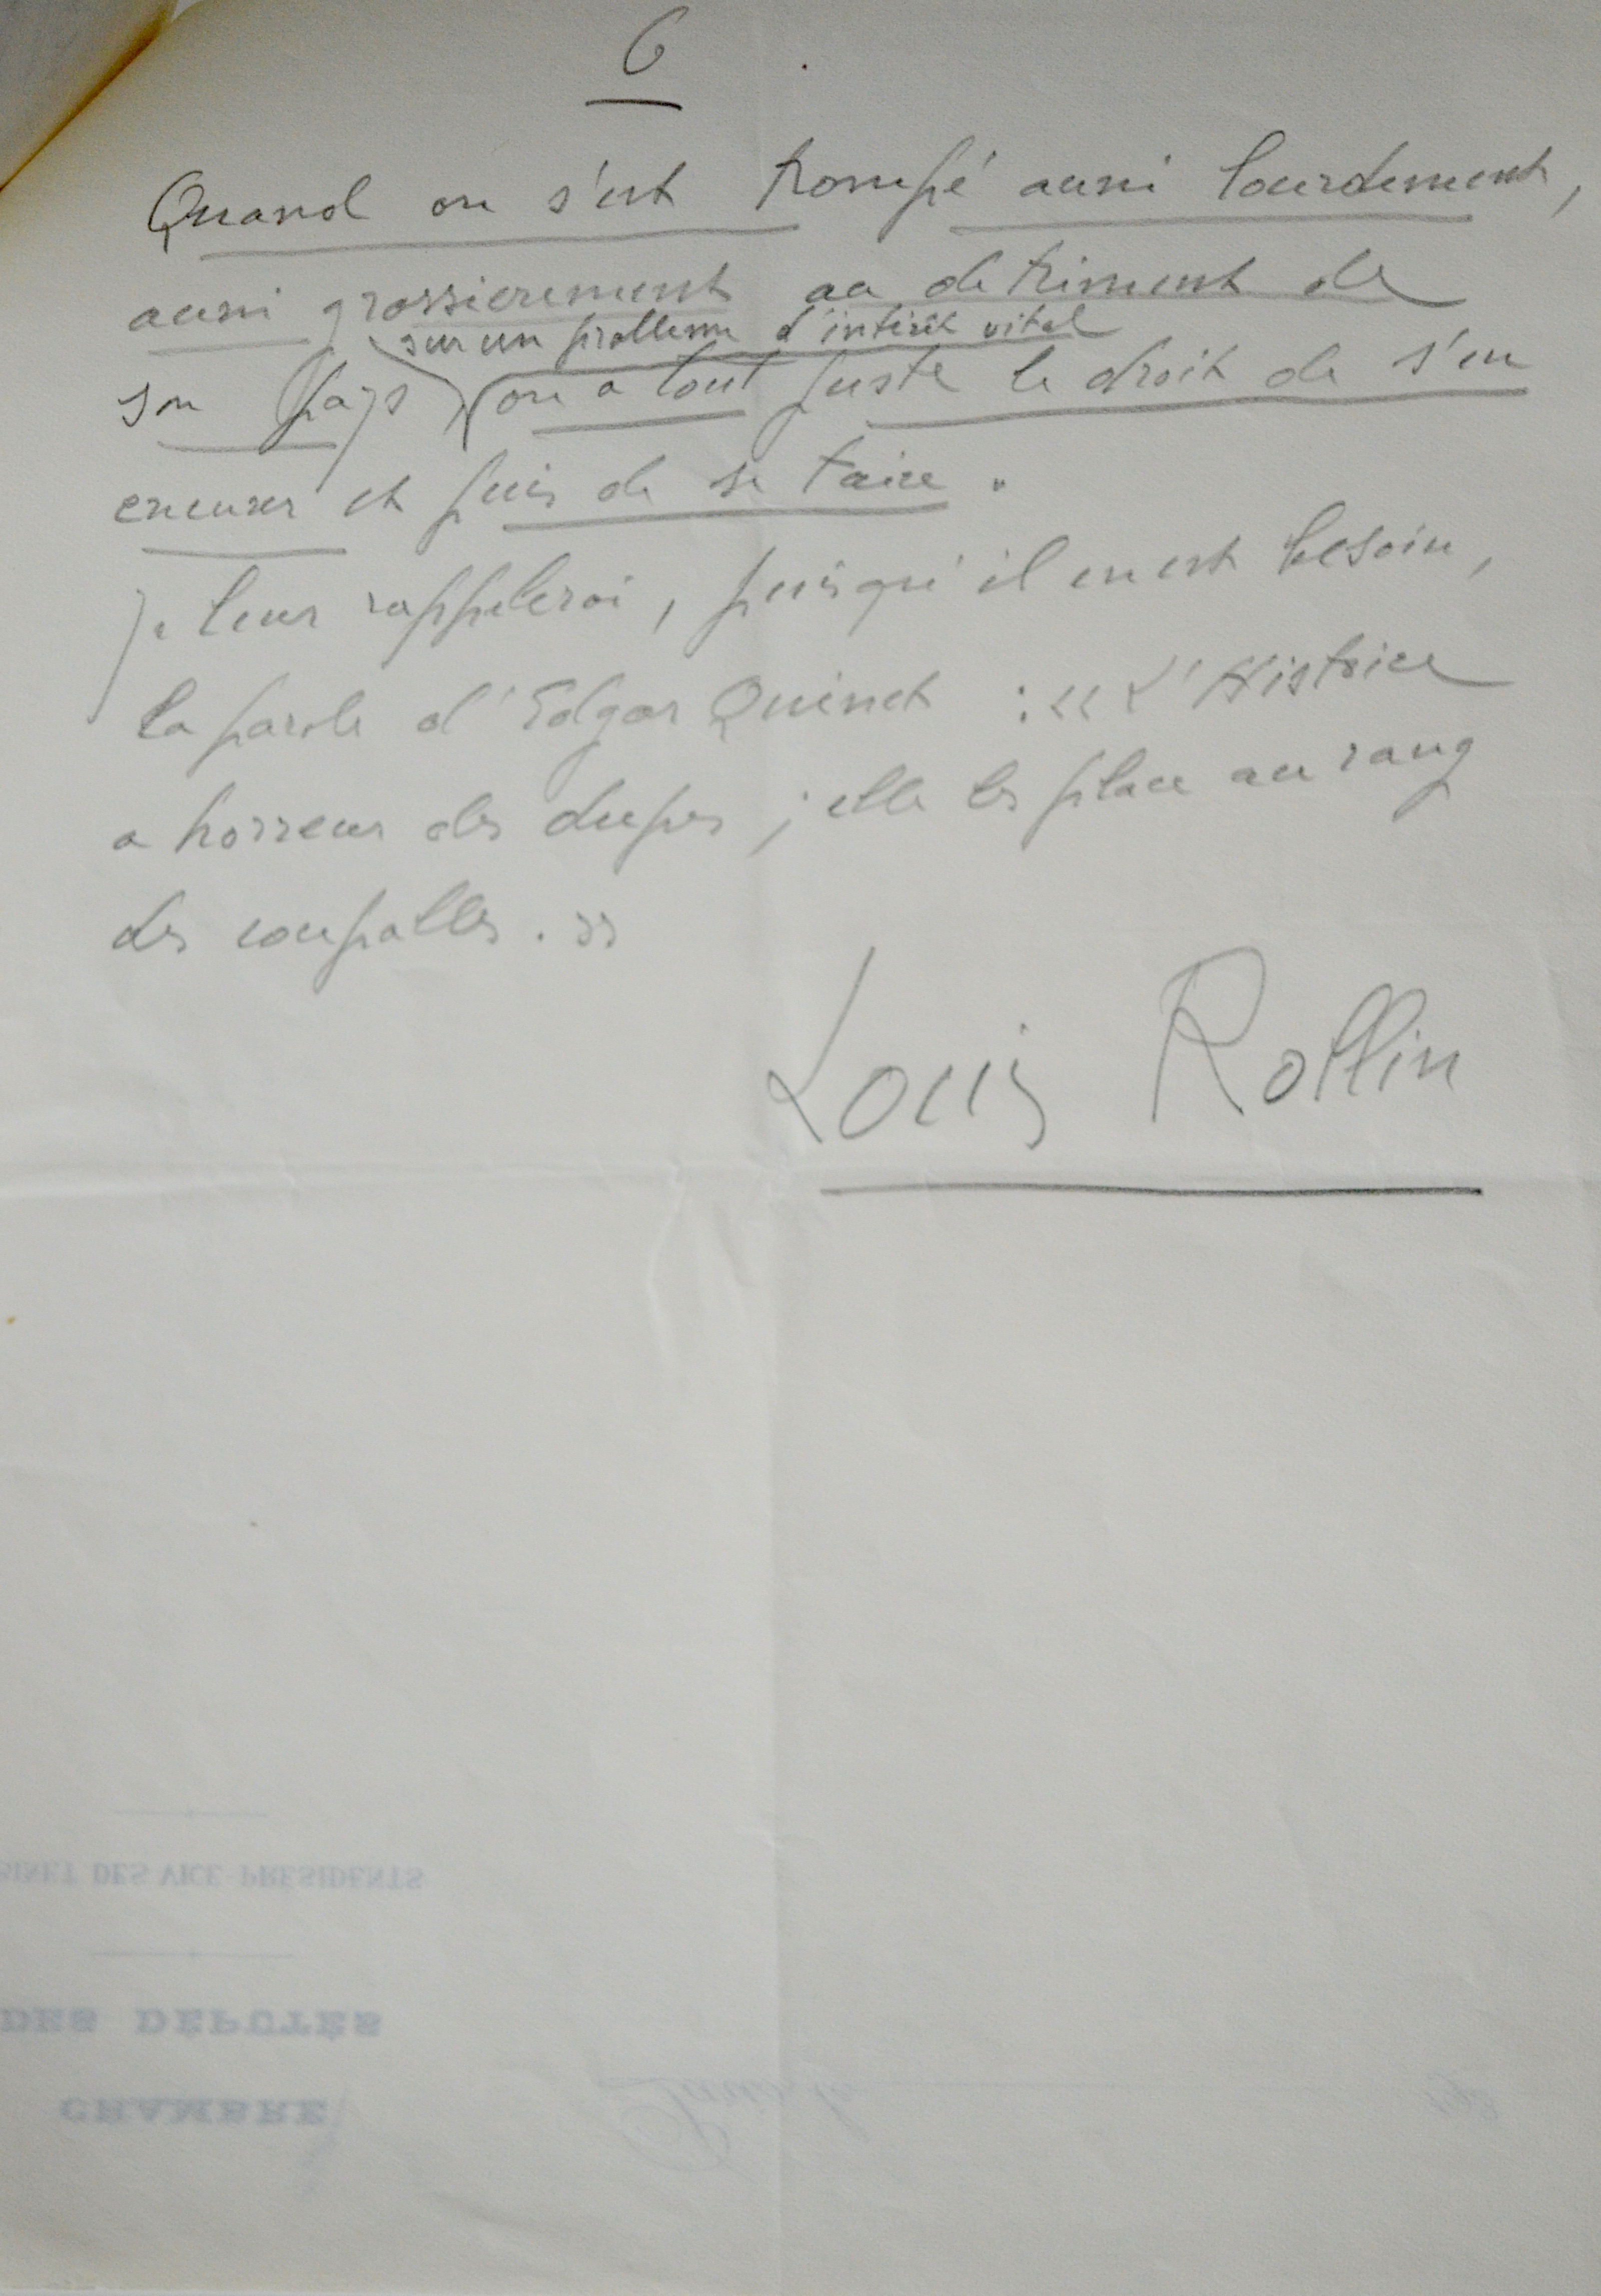 6
Quand on s'est trompé aussi lourdement,
aussi grossierement au detriment de
sur un probleme d'intérêt vital
son pays on a tout juste le droit de s'en
excuser et puis de se taire.
Je leur rappelerai, puisqu'il en est besoin,
la parole d'Edgar Quinet : « L'Histoire
a horreur des dupes ; elle les place au rang
des coupables. »
Louis Rollin
CABINET DES VICE-PRÉSIDENTS
DES DÉPUTÉS
CHAMBRE
Paris, le